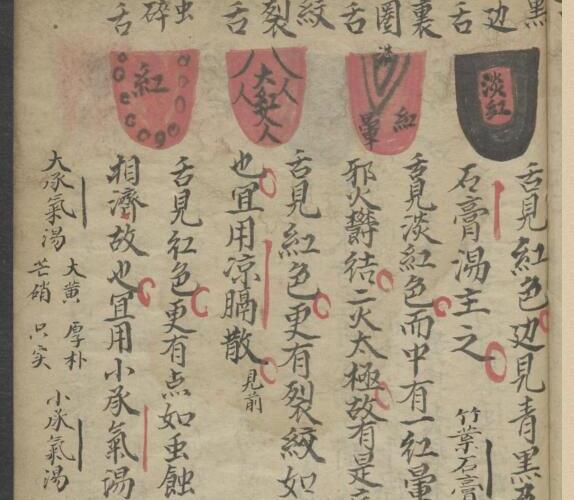 黑边舌
裏圈舌
紋裂舌
虫碎舌
淡紅
紅
暈
大紅
人
人
人
人
紅
舌見紅色边見青黑
石膏湯主之
竹葉石膏
舌見淡紅色而中有一紅暈
邪火鬱結二火太極故有是
舌見紅色更有裂紋如
也宜用凉膈散
見前
舌見紅色更有点如虫蝕
相濟故也宜用小承氣湯
大承氣湯
大黄 厚朴
芒硝 只实
小承氣湯